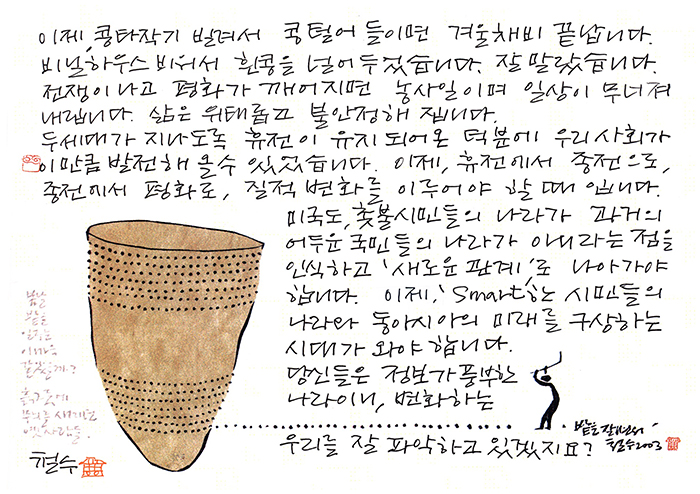 이제, 콩타작기 빌려서 콩털어 들이면 겨울채비 끝납니다.
비닐하우스 비워서 흰콩을 널어두었습니다. 잘 말랐습니다.
전쟁이 나고 평화가 깨어지면 농사일이며 일상이 무너져
내립니다. 삶은 위태롭고 불안정해 집니다.
두세대가 지나도록 휴전이 유지되어온 덕분에 우리사회가
이만큼 발전해 올 수 있었습니다. 이제, 휴전에서 종전으로,
종전에서 평화로, 질적 변화를 이루어야 할 때 입니다.
미국도, 촛불시민들의 나라가 과거의
어두운 국민들의 나라가 아니라는 점을
인식하고 '새로운 관계'로 나아가야
합니다. 이제, 'Smart'한 시민들의
나라와 동아시아의 미래를 구상하는
시대가 와야 합니다.
당신들은 정보가 풍부한
나라이니, 변화하는
우리를 잘 파악하고 있겠지요?
흙그릇에
무늬를 새기는
옛사람들.
철수
철수2003